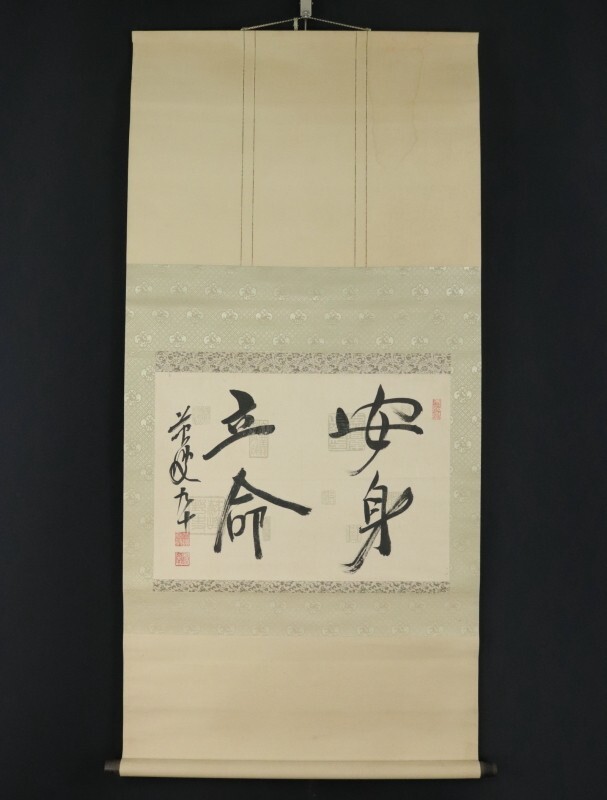 安身
立命
九十